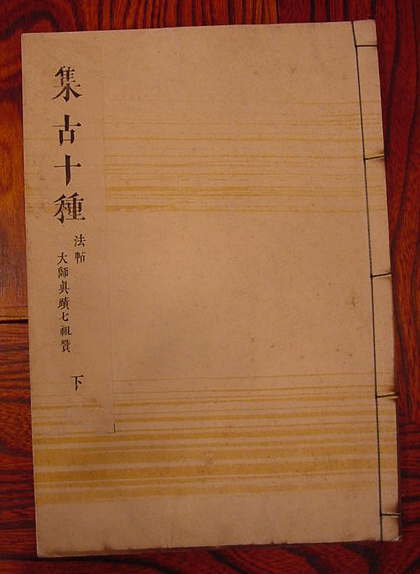 集古十種
法帖
大師真蹟七祖賛
下